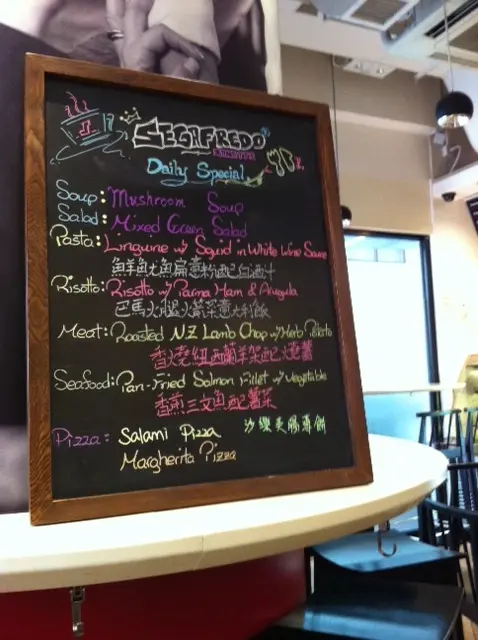 SEGAFREDO
Daily Special
Soup: Mushroom Soup
Salad: Mixed Green Salad
Pasta: Linguine w/ Squid in White Wine Sauce
鮮魷魚扁意粉配白酒汁
Risotto: Risotto w/ Parma Ham & Arugula
巴馬火腿火箭菜意大利飯
Meat: Roasted NZ Lamb Chop w/ Herb Potato
香燒紐西蘭羊架配火焗薯
Seafood: Pan-Fried Salmon Fillet w/ Vegetable
香煎三文魚配蕃菜
Pizza: Salami Pizza 沙樂美腸薄餅
Margherita Pizza